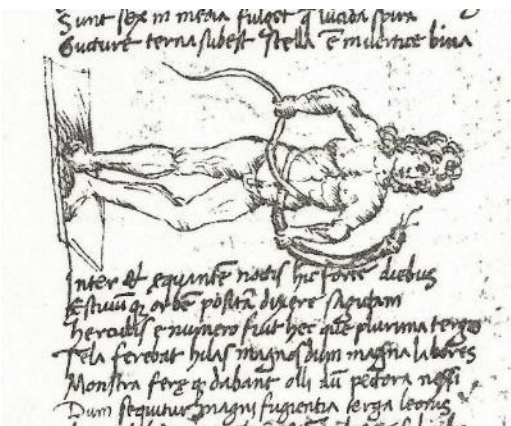 Sunt sex in media fulget q lucida spira
Guture terna subest Stella ē in vertice bina
Inter & equantē noctis hic forte diebus
Estivūq; orbē positā dixere sagittam
Herculis e numero fuit hec que plurima tergo
Tela ferebat hilas magnos dum magna labores
Monstra ferę q; dabant olli dū pectora nessi
Dum sequitur magni fugientia terga leonis